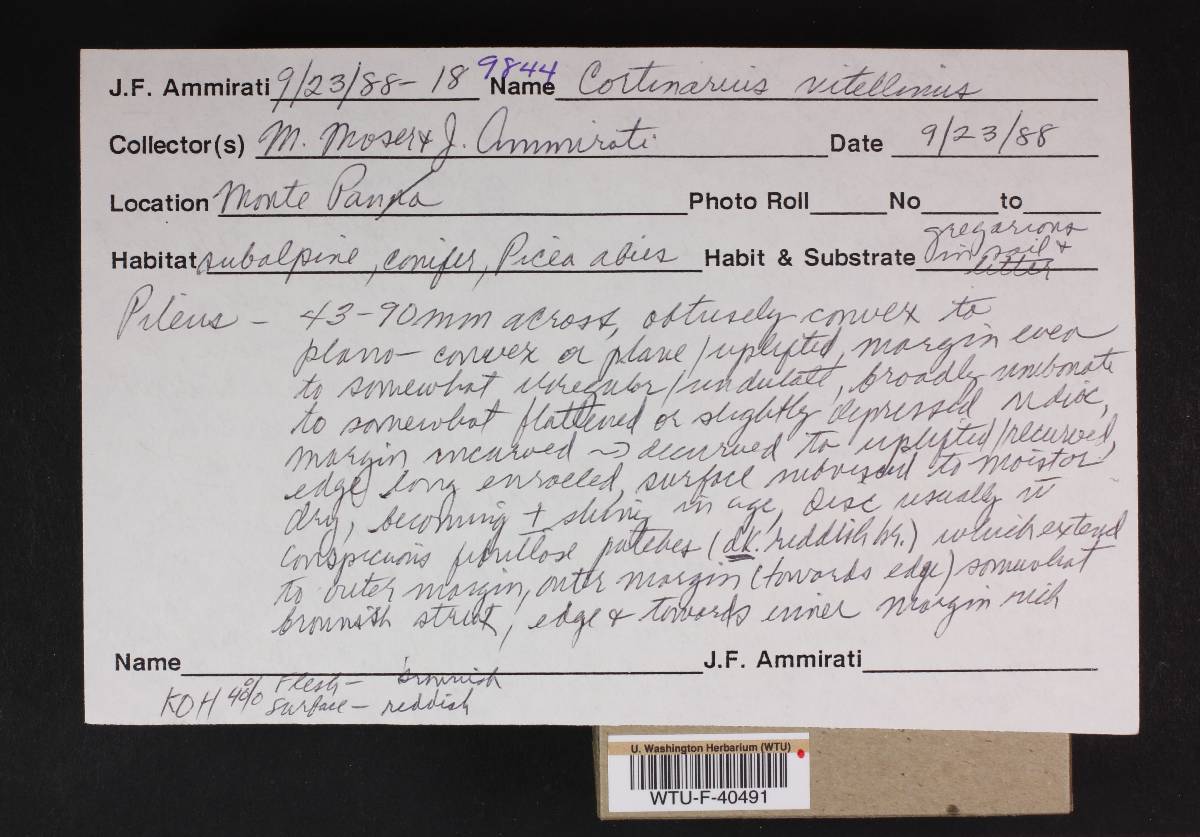 J.F. Ammirati 9/23/88-18 9844 Name Cortinarius vitellinus
Collector(s) M. Moser & J. Ammirati Date 9/23/88
Location Monte Photo Roll No to
Habitat subalpine, conifer, Picea abies Habit & Substrate gregarious
in soil &
litter
Pileus - 43-90mm across, obtusely convex to
plano-convex or plane/uplifted, margin even
to somewhat irregular/undulate, broadly umbonate
to somewhat flattened or slightly depressed disc,
margin incurved → decurved to uplifted/recurved,
edge long enrolled, surface to moist or
dry, becoming ± shiny in age, Disc usually w
conspicuous fibrillose patches (dk. reddish br.) which extend
to outer margin, outer margin (towards edge) somewhat
brownish striat, edge & towards inner margin rich
Name J.F. Ammirati
KOH 4% Flesh - brownish
Surface - reddish
U. Washington Herbarium (WTU)
WTU-F-40491